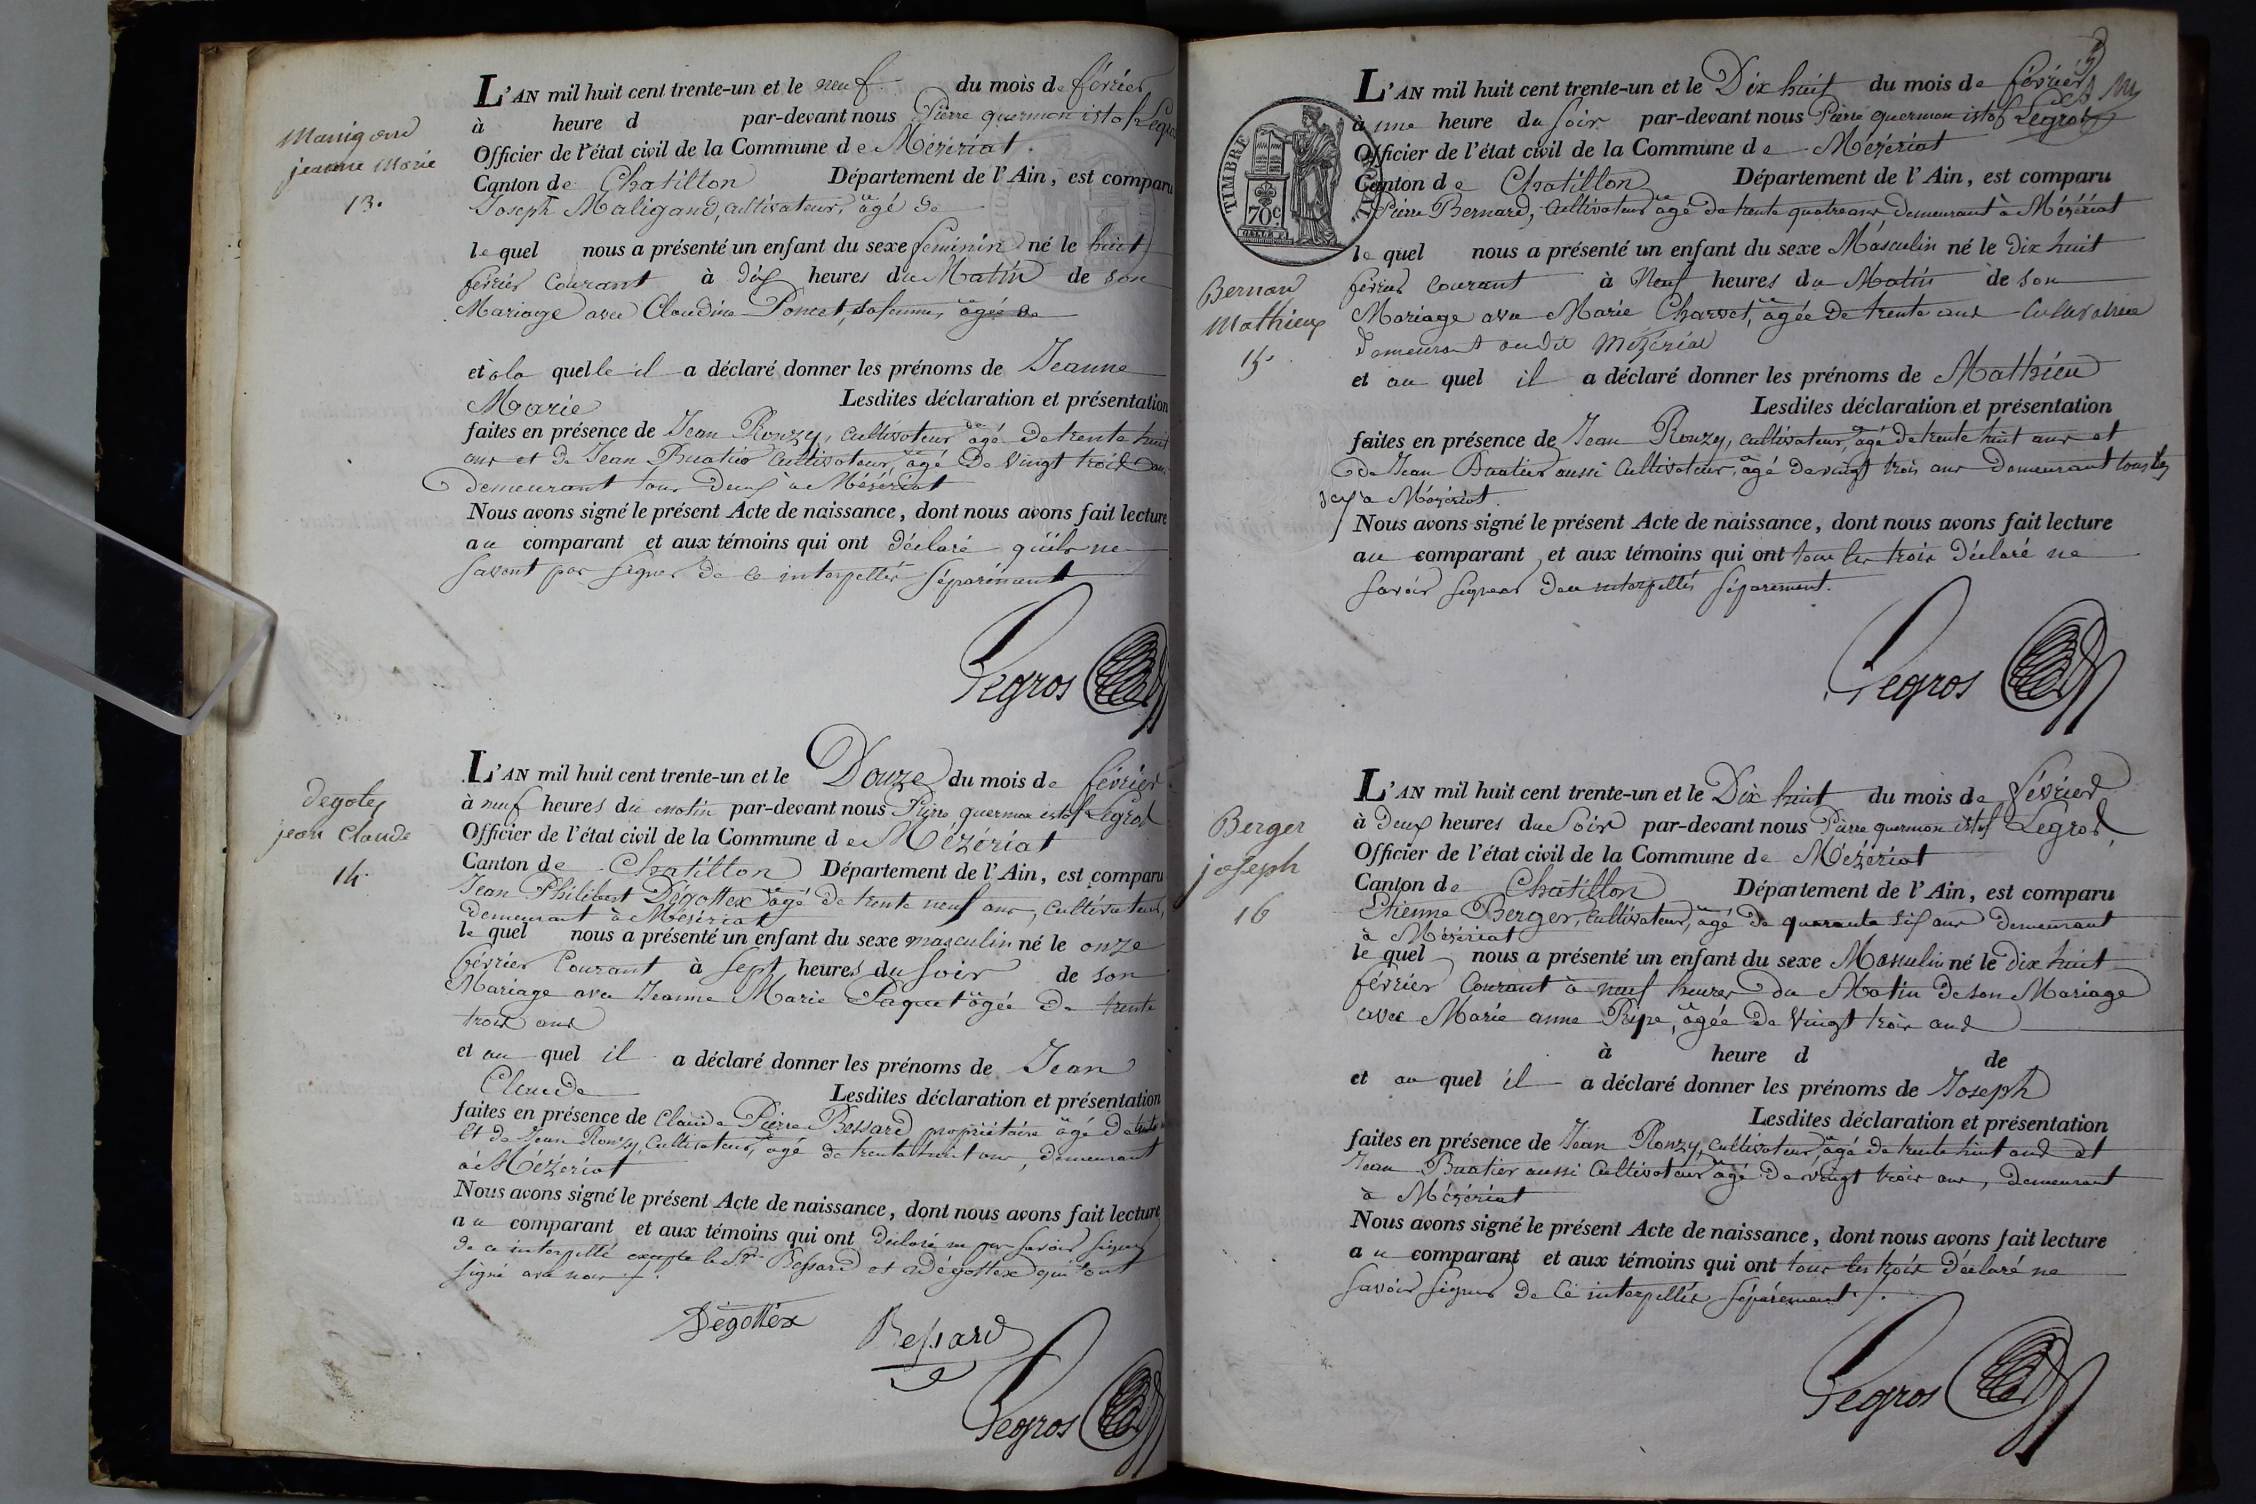 Manigand
jeanne Marie
13.
L'AN mil huit cent trente-un et le neuf du mois de février
à heure d par-devant nous Pierre quermon istof Legros
Officier de l'état civil de la Commune de Mézériat.
Canton de Chatillon Département de l'Ain, est comparu
Joseph Maligand, cultivateur, âgé de
le quel nous a présenté un enfant du sexe féminin né le huit
février courant à dix heures du Matin de son
Mariage avec Claudine Poncet, sa femme, âgée de
et à la quelle il a déclaré donner les prénoms de Jeanne
Marie Lesdites déclaration et présentation
faites en présence de Jean Ronzy, cultivateur âgé de trente huit
ans et de Jean Buatier Cultivateur, âgé De Vingt trois ans
demeurant tous deux à Mézériat
Nous avons signé le présent Acte de naissance, dont nous avons fait lecture
au comparant et aux témoins qui ont déclaré qu'ils ne
savent pas signer de ce interpellés séparément
Legros
degotex
jean Claude
14.
L'AN mil huit cent trente-un et le Douze du mois de février
à neuf heures du matin par-devant nous Pierre quermon istof Legros
Officier de l'état civil de la Commune de Mézériat
Canton de Chatillon Département de l'Ain, est comparu
Jean Philibert Dégottex âgé de trente neuf ans, cultivateur,
demeurant à Mézériat
le quel nous a présenté un enfant du sexe masculin né le onze
février Courant à sept heures du soir de son
Mariage avec Jeanne Marie Paquet âgée De trente
trois ans
et au quel il a déclaré donner les prénoms de Jean
Claude Lesdites déclaration et présentation
faites en présence de Claude Pierre Bessard propriétaire âgé de trente
Et de Jean Ronzy, Cultivateur, âgé de trente huit ans, demeurant
à Mézériat
Nous avons signé le présent Acte de naissance, dont nous avons fait lecture
au comparant et aux témoins qui ont déclaré ne pas savoir signer
de ce interpellé excepté le Sr. Bessard et Dégottex qui ont
signé avec nous
Dégottex
Bessard
Legros
5
L'AN mil huit cent trente-un et le Dix huit du mois de février
à une heure du soir par-devant nous Pierre quermon istof Legros
Officier de l'état civil de la Commune de Mézériat
Canton de Chatillon Département de l'Ain, est comparu
Pierre Bernard, Cultivateur âgé de trente quatre ans, demeurant à Mézériat
TIMBRE ROYAL
70c
Bernard
Mathieu
15.
le quel nous a présenté un enfant du sexe Masculin né le dix huit
février courant à Neuf heures du Matin de son
Mariage avec Marie Charvet, âgée De trente ans Cultivatrice
demeurant audit Mézériat
et au quel il a déclaré donner les prénoms de Mathieu
Lesdites déclaration et présentation
faites en présence de Jean Ronzy, cultivateur, âgé de trente huit ans et
de Jean Buatier aussi Cultivateur, âgé de vingt trois ans Demeurant tous les
deux à Mézériat.
Nous avons signé le présent Acte de naissance, dont nous avons fait lecture
au comparant et aux témoins qui ont tous les trois déclaré ne
savoir signer de ce interpellés séparement.
Legros
Berger
joseph
16
L'AN mil huit cent trente-un et le Dix huit du mois de février
à Deux heures du soir par-devant nous Pierre quermon istof Legros
Officier de l'état civil de la Commune de Mézériat
Canton de Chatillon Département de l'Ain, est comparu
Etienne Berger, cultivateur, âgé de quarante six ans demeurant
à Mézériat
le quel nous a présenté un enfant du sexe Masculin né le dix huit
février Courant à neuf heures du Matin de son Mariage
avec Marie anne Pepe, âgée de Vingt trois ans
à heure d de
et au quel il a déclaré donner les prénoms de Joseph
Lesdites déclaration et présentation
faites en présence de Jean Ronzy, cultivateur, âgé de trente huit ans et
Jean Buatier aussi Cultivateur âgé De vingt trois ans, demeurant
à Mézériat
Nous avons signé le présent Acte de naissance, dont nous avons fait lecture
au comparant et aux témoins qui ont tous les trois déclaré ne
savoir signer de ce interpellés séparément.
Legros